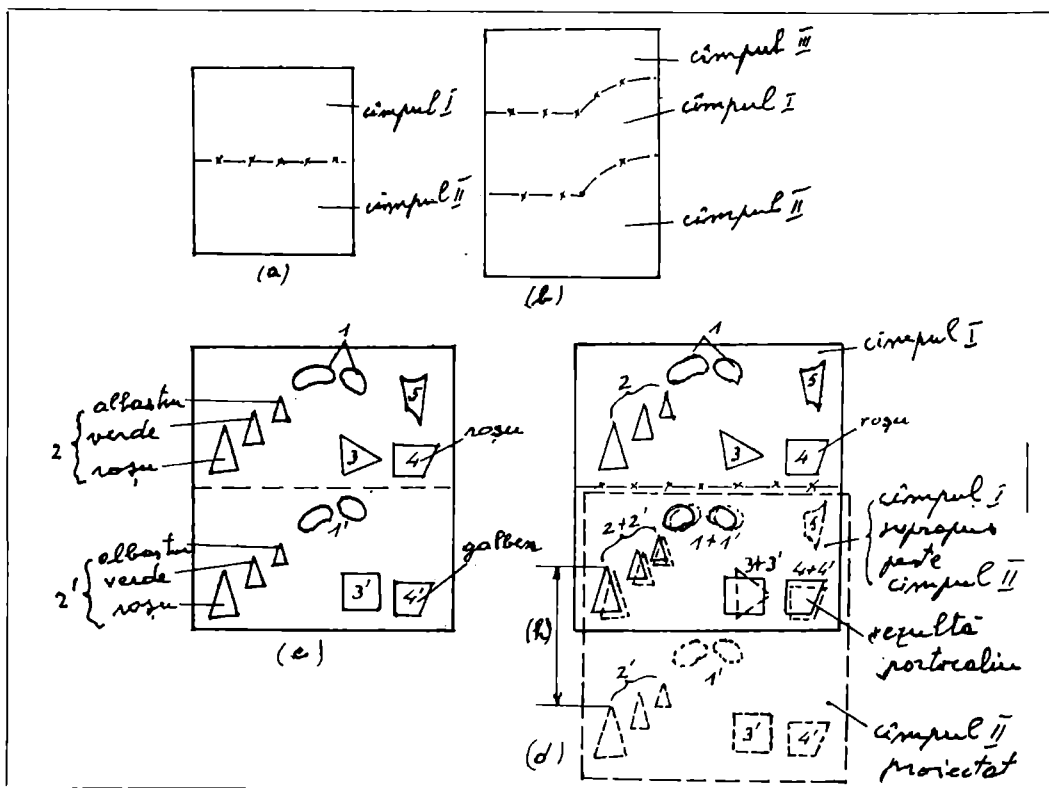 cîmpul I
cîmpul II
(a)
cîmpul III
cîmpul I
cîmpul II
(b)
1
albastru
verde
roșu
2
5
3
4
roșu
albastru
verde
roșu
2'
1'
3'
4'
galben
(c)
1
cîmpul I
2
5
3
4
roșu
2+2'
1+1'
5
3+3'
4+4'
cîmpul I
suprapus
peste
cîmpul II
rezultă
portocaliu
(h)
2'
1'
3'
4'
cîmpul II
proiectat
(d)